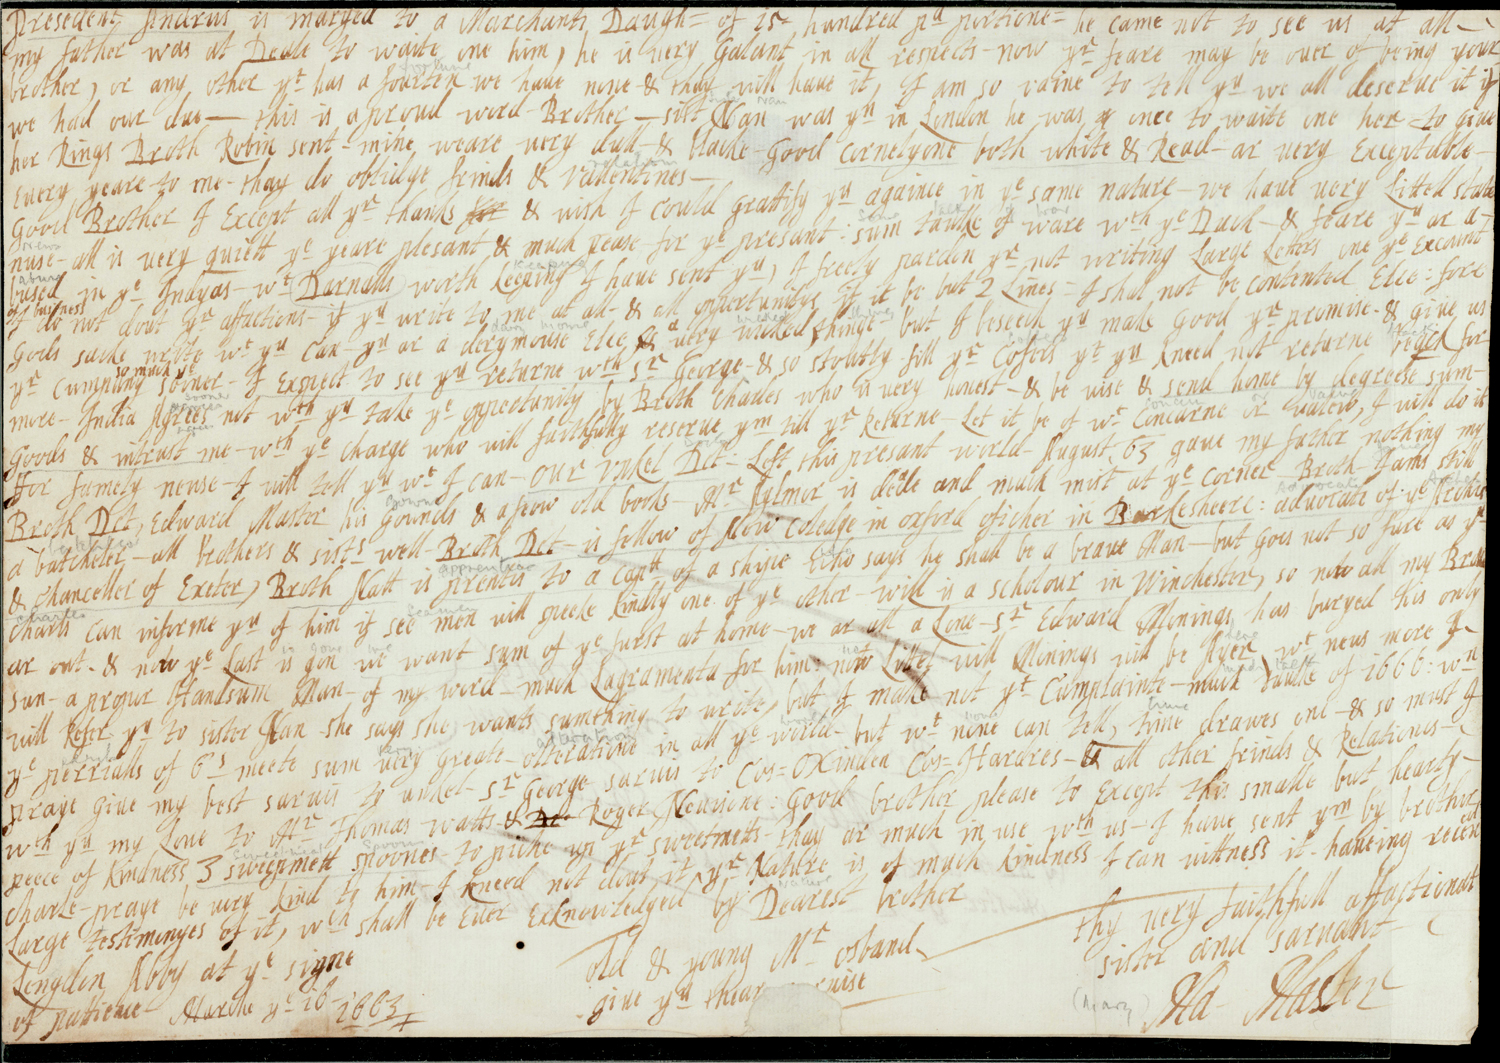 Presedent Andrus is maryed to a Marchants Daugh= of 15= hundred pd portione= he came not to see us at all
my father was at Deale to waite one him, he is very Galant in all respects now yr feare may be over of being your
brother, or any other yt has a fourten we have none & thay will have it, I am so vaine to tell yu we all deserve it if
we had our due — this is a proud word Brother — sist Nan was yn in London he was yr once to waite one her = to give
her Rings Broth Robin sent mine weare very dull & blacke Good Cornelyone both white & Read ar very Exceptable
Every yeare to me thay do oblidge frinds & vallentines
Good Brother I Except all yr thanks & wish I could gratify yu againe in ye same nature we have very Littell state
nuse all is very quiett ye yeare plesant & much pease for ye presant: sum taulke of ware wth ye Duch & feare yu ar a
bused in ye Indyas wt Darnalls worth keeping I have sent yu, I freely pardon yr not writing Large Leters one ye Excount
of buisness
I do not dout yr affactions if yu write to me at all & all opertunitys if it be but 2 Lines = I shal not be contented Elce: fore
Gods sacke write wt yu Can yu ar a derymouse Elce & a very wicked thinge but I beseech yu make Good yr promise & give us
yr Cumpany so much ye sooner I Exspect to see yu returne wth Sr George & so stoutly fill yr Cofers yt yu kneed not returne for
more India Agrees not wth yu take ye oppertunity by Broth Charles who is very honest & be wise & send home by degrese sum
Goods & intrust me wth ye charge who will faithfully reserve ym till yr Returne Let it be of wt Concarne or valew, I will do it
for famely neuse I will tell yu wt I can our unkel Dct: Left this present world August, 63 gave my father nothing my
Broth Dct, Edward Master his Gounds & a few old books Mr Aylmor is dede and much mist at ye corner Broth Hams still
a batcheler all brothers & sists well Broth Dct is fellow of New Coledge in oxford oficher in Barkesheere: advocate of ye Arches
& chanceller of Exeter, Broth Natt is prentis to a Captt of a shipe who says he shall be a brave Man but Goes not so sure as yr
Charls can informe yu of him if see men will speke kindly one of ye other will is a scholour in Winchester, so now all my Broths
ar out & now ye Last is gon we want sum of ye furst at home we ar all a Lone Sr Edward Monings has buryed his only
sun a propur Handsum Man of my word much Lagramenta for him now Littel will Minings will be Ayer wt neus more I
will Refer yu to sister Nan she says she wants sumthing to write, but I make not yt Cumplainte much taulke of 1666: wn
ye perrialls of 6s meete sum very greate olteratione in all ye world but wt nine can tell, time drawes one & so must I
praye give my best sarvis to unkel Sr George sarvis to Cos= Oxinden Cos= Hardres & all other frinds & Relations
wth yu my Love to Mr Thomas watts & Roger Newisone: Good brother please to Except this smalle but hearty
peece of Kindness 3 sweetmett spoones to picke up yr sweetmets thay ar much in use wth us I have sent ym by brother
Charle praye be very kind to him I kneed not dout it yr Nature is of much kindness I can wittness it haveing receved
Large testimonyes of it, wch shall be Ever Exknowledged by Dearest brother
thy very faithfull affactionat
sister and sarvant
Ha Master
old & young Mr osband
give yu thear
Lengdon Aboy at ye signe
of pattience Marche ye 16
1663